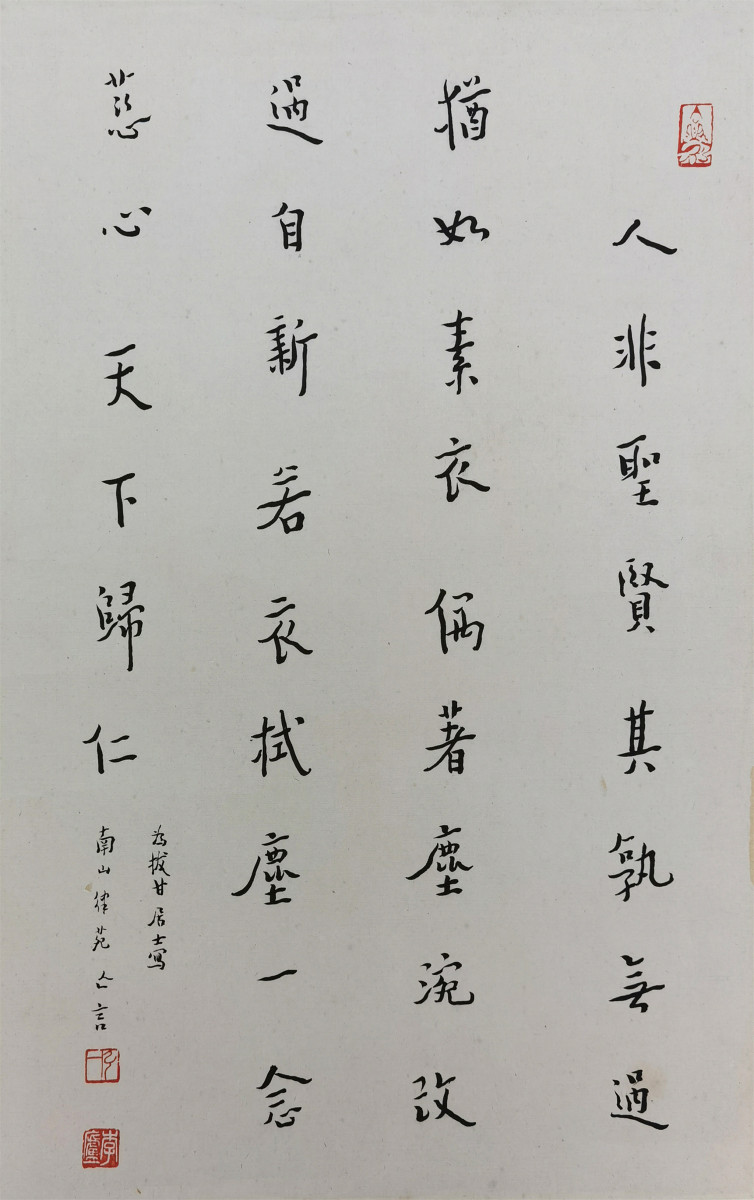 人非聖賢其孰無過
猶如素衣偶著塵涴改
過自新若衣拭塵一念
慈心天下歸仁
為拔甘居士寫
南山律苑亾言
弘一
李廬